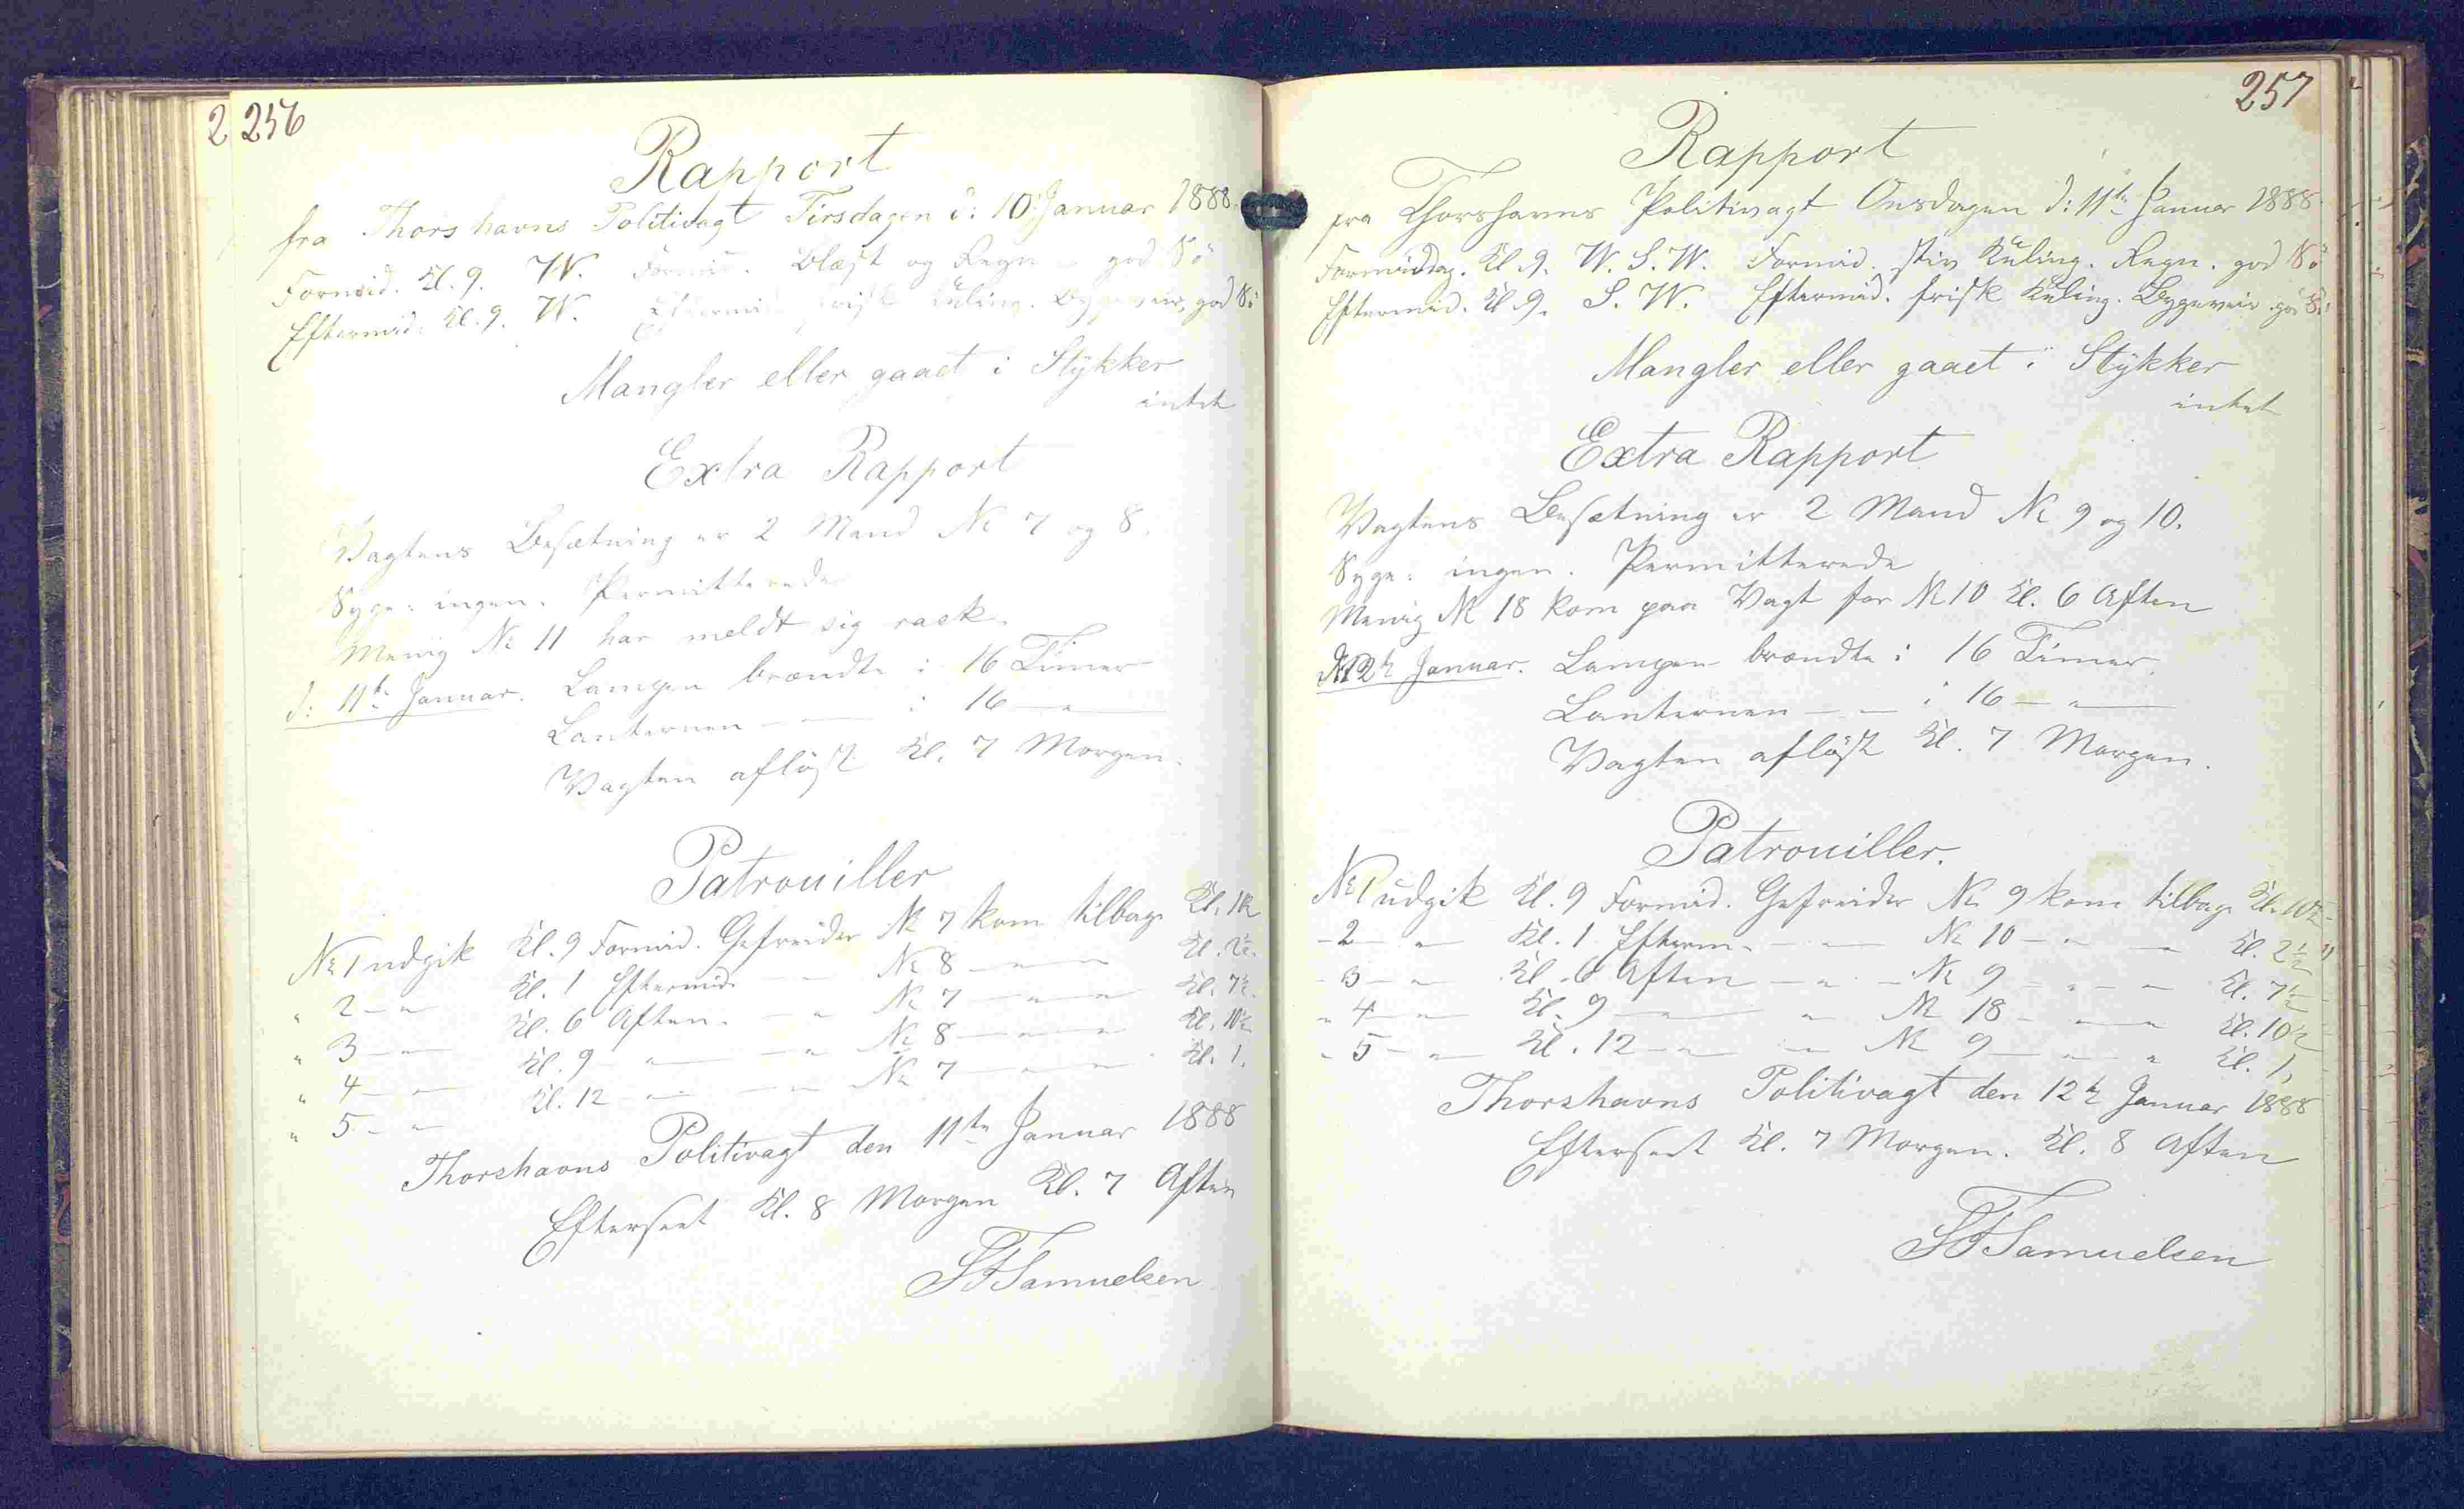 256
Rapport
fra Thorshavns Politivagt Tirsdagen d: 10 Januar 1888.
Formid. Kl. 9. W. Formid. Blæst og Regn. god Sö
Eftermid. Kl. 9. W. Eftermid. frisk Kuling. Bygeveir, god Sö
Mangler eller gaaet i Stykker
intet
Extra Rapport
Vagtens Besætning er 2 Mand No 7 og 8.
Syge: ingen. Permitterede
Menig No 11 har meldt sig rask.
d: 11te Januar. Lampen brændte i 16 Timer
Lanternen — — i 16 — " —
Vagten aflöst Kl. 7 Morgen.
Patrouiller
No 1 udgik Kl. 9 Formid. Gefreider No 7 kom tilbage Kl.
" 2 — " — Kl. 1 Eftermid. — " No 8 — " — " Kl. 2½.
" 3 — " — Kl. 6 Aften. — " No 7 — " — " Kl. 7½.
" 4 — " — Kl. 9 — " — — " No 8 — " — " Kl. 10½
" 5 — " Kl. 12 — " — — " No 7 — " — " Kl. 1.
Thorshavns Politivagt den 11te Januar 1888
Efterseet Kl. 8 Morgen Kl. 7 Aften
Samuelsen
257
Rapport
fra Thorshavns Politivagt Onsdagen d: 11te Januar 1888.
Formiddag. Kl. 9. W. S. W. Formid. stiv Kuling. Regn. god Sö
Eftermid. Kl. 9. S. W. Eftermid. frisk Kuling. Bygeveir. god Sö
Mangler eller gaaet i Stykker
intet
Extra Rapport
Vagtens Besætning er 2 Mand No 9 og 10.
Syge: ingen. Permitterede
Menig No 18 kom paa Vagt for No 10 Kl. 6 Aften
d: 12te Januar. Lampen brændte i 16 Timer
Lanternen — — i 16 — " —
Vagten aflöst Kl. 7 Morgen.
Patrouiller.
No 1 udgik Kl. 9 Formid. Gefreider No 9 kom tilbage Kl. 10½
- 2 — " — Kl. 1 Efterm. — " — No 10 — " — " Kl. 2½ "
- 3 — " — Kl. 6 Aften — " — No 9 — " — " Kl. 7½
" 4 — " — Kl. 9 — " — " No 18 — " — " Kl. 10½
" 5 — " — Kl. 12 — " — " No 9 — " — " Kl. 1.
Thorshavns Politivagt den 12te Januar 1888
Efterseet Kl. 7 Morgen. Kl. 8 Aften
Samuelsen